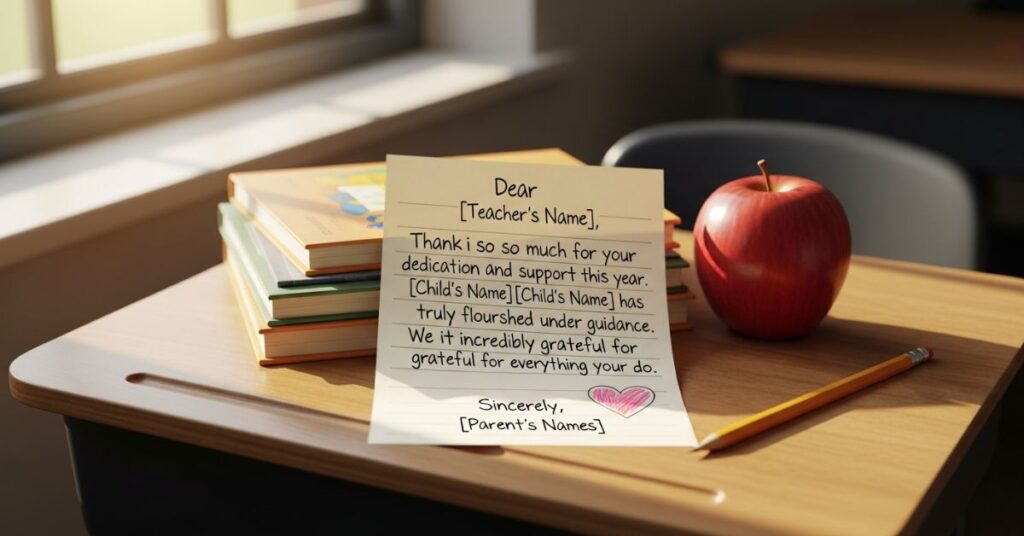 Dear
[Teacher's Name],
Thank i so so much for your
dedication and support this year.
[Child's Name][Child's Name] has
truly flourshed under guidance.
We it incredibly grateful for
grateful for everything your do.
Sincerely,
[Parent's Names]